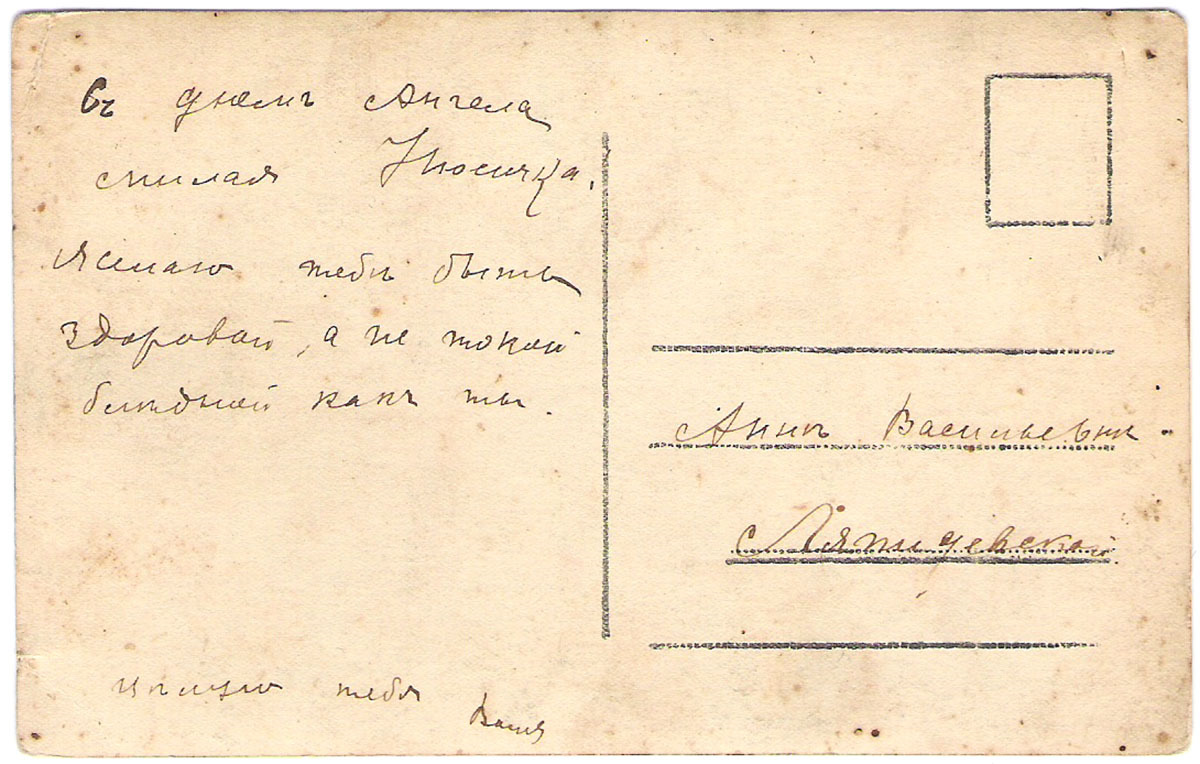 Съ днемъ Ангела
милая Нюсичка.
Желаю тебѣ быть
здоровой, а не такой
блѣдной какъ ты.
цѣлую тебя
Ваня
Аннѣ Васильевнѣ
Ляпидевской